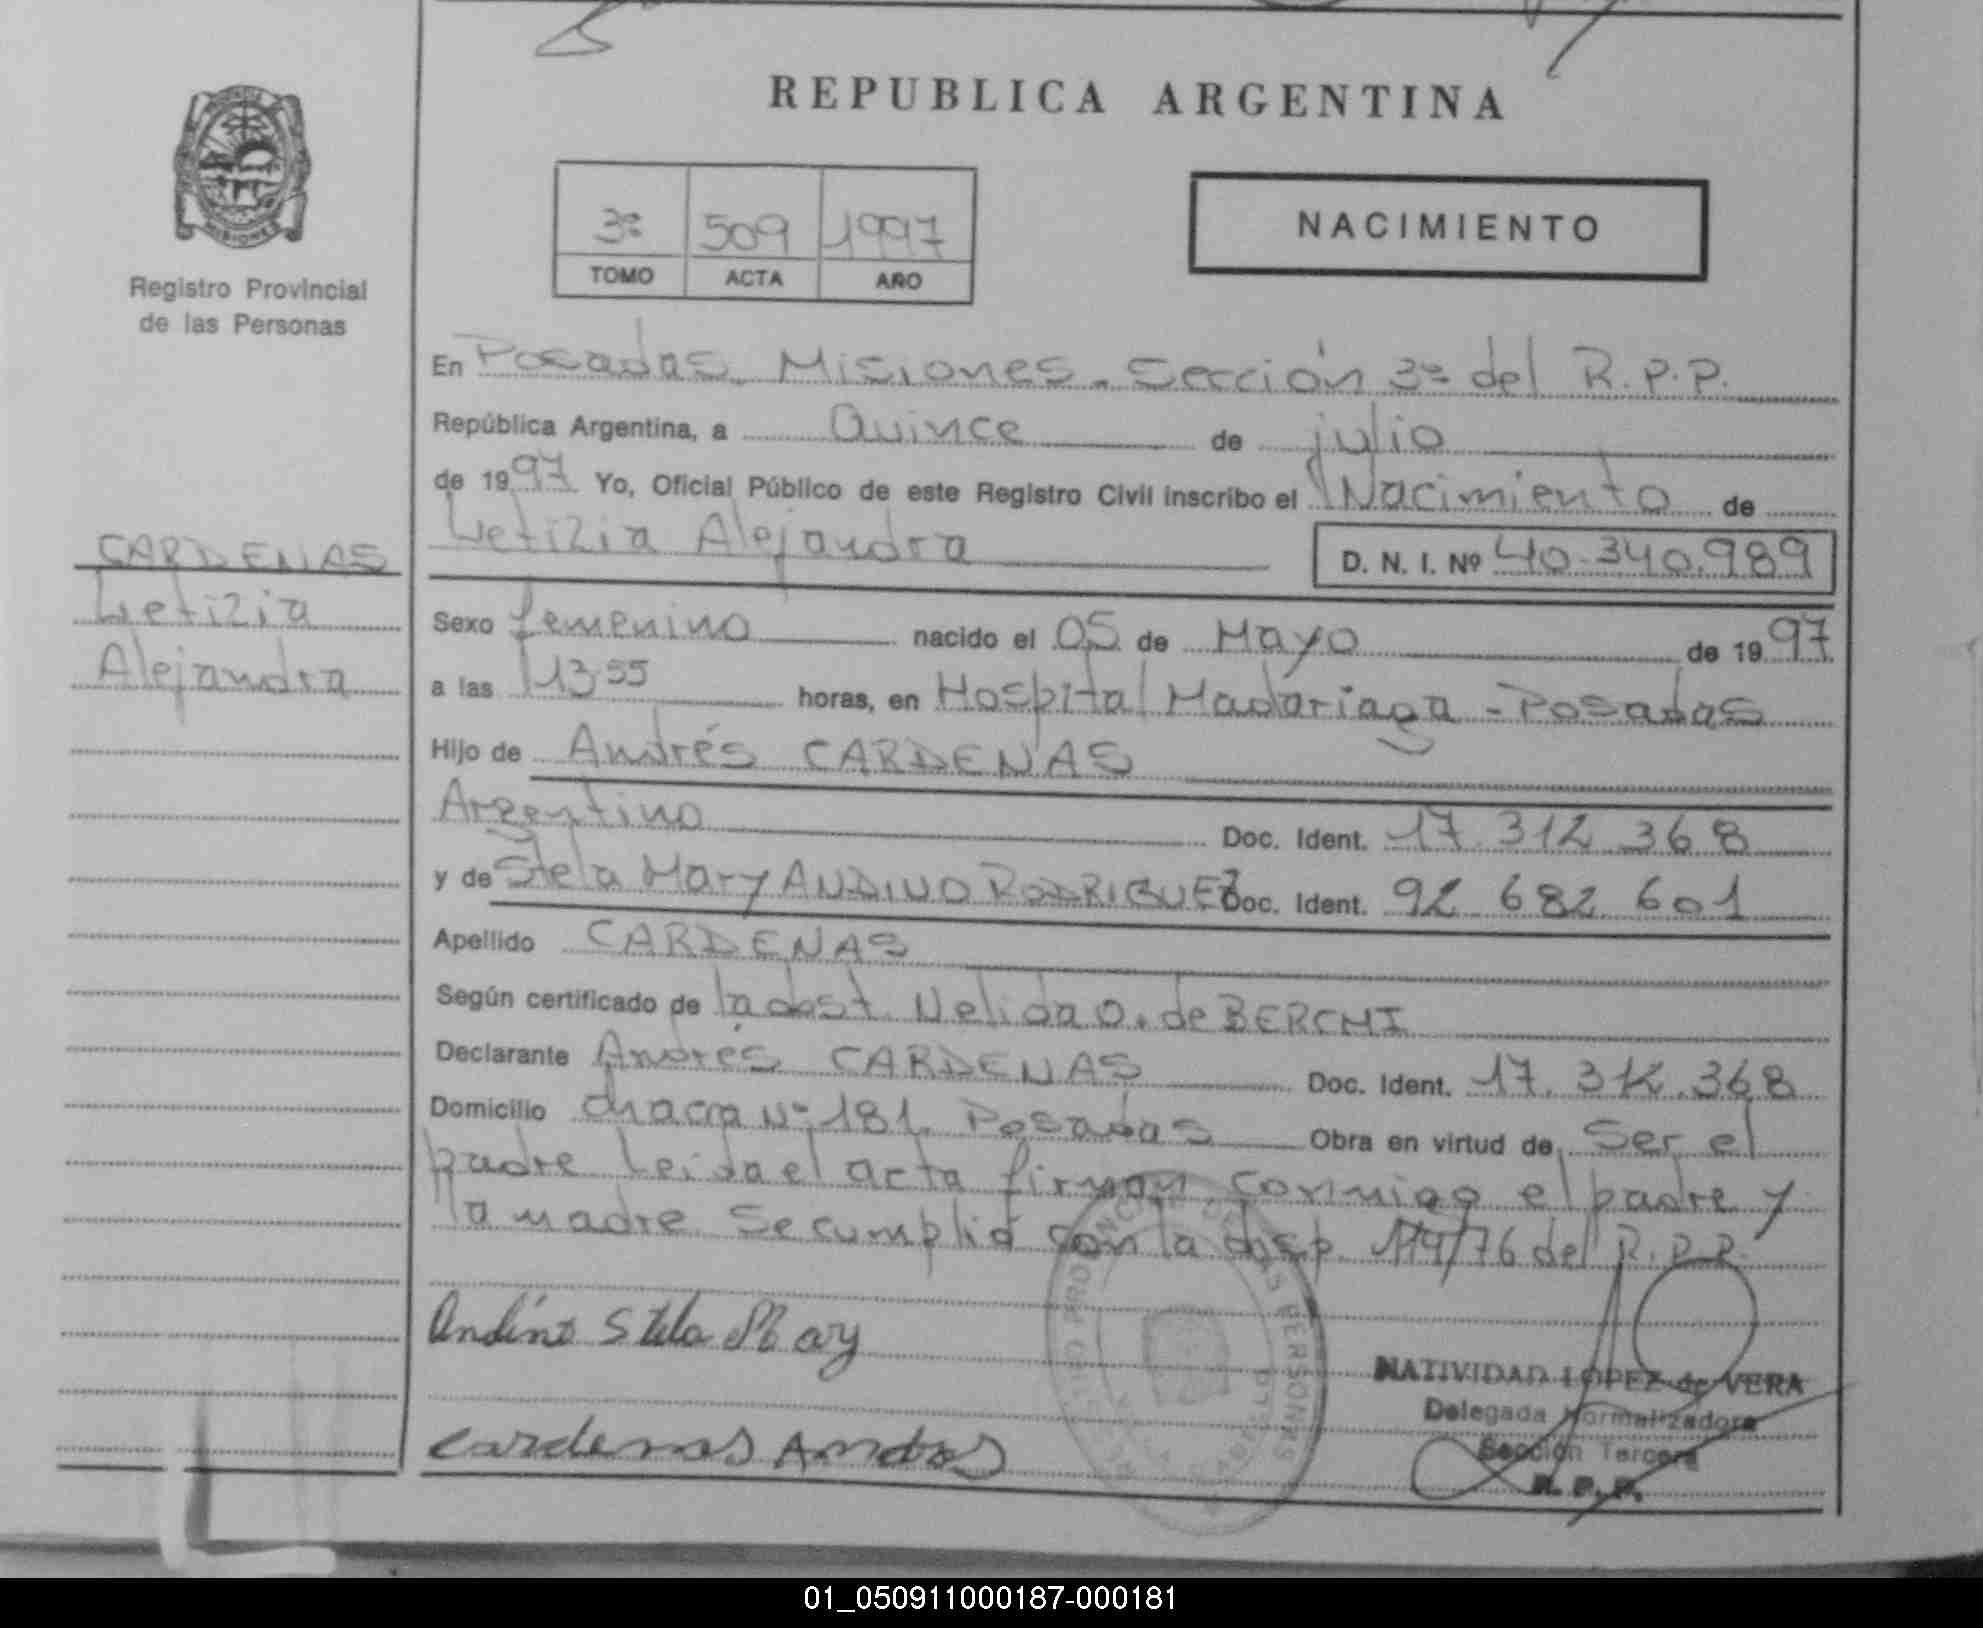 REPUBLICA ARGENTINA
MISIONES
Registro Provincial
de las Personas
3º 509 1997
TOMO ACTA AÑO
NACIMIENTO
En Posadas, Misiones. Sección 3º del R.P.P.
República Argentina, a Quince de julio
de 1997 Yo, Oficial Público de este Registro Civil inscribo el Nacimiento de
Letizia Alejandra D. N. I. Nº 40.340.989
CARDENAS
Letizia
Alejandra
Sexo femenino nacido el 05 de Mayo de 1997
a las 13:55 horas, en Hospital Madariaga - Posadas
Hijo de Andrés CARDENAS
Argentino Doc. Ident. 17.312.368
y de Stela Mary ANDINO RODRIGUEZ Doc. Ident. 92 682 601
Apellido CARDENAS
Según certificado de la obst. Nelida O. de BERCHI
Declarante Andrés CARDENAS Doc. Ident. 17.312.368
Domicilio chacra Nº 181. Posadas Obra en virtud de Ser el
padre Leida el acta firman conmigo el padre y
la madre Se cumplió con la disp. 114/76 del R.P.P.
Andino Stela Mary
NATIVIDAD LOPEZ de VERA
Delegada Normalizadora
Sección Tercera
R. P. P.
Cardenas Andres
01_050911000187-000181